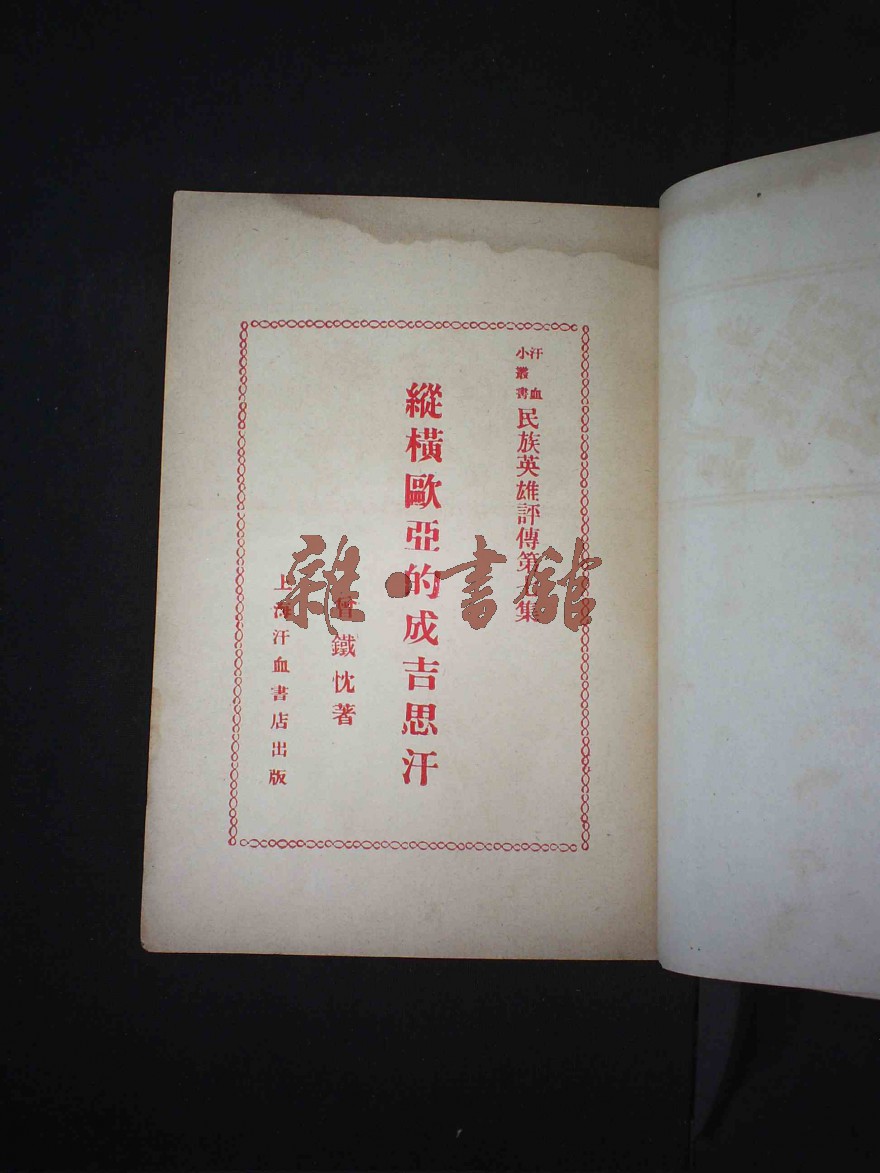 汗血小叢書
民族英雄評傳第 集
縱橫歐亞的成吉思汗
曾鐵忱著
上海汗血書店出版
雜·書館